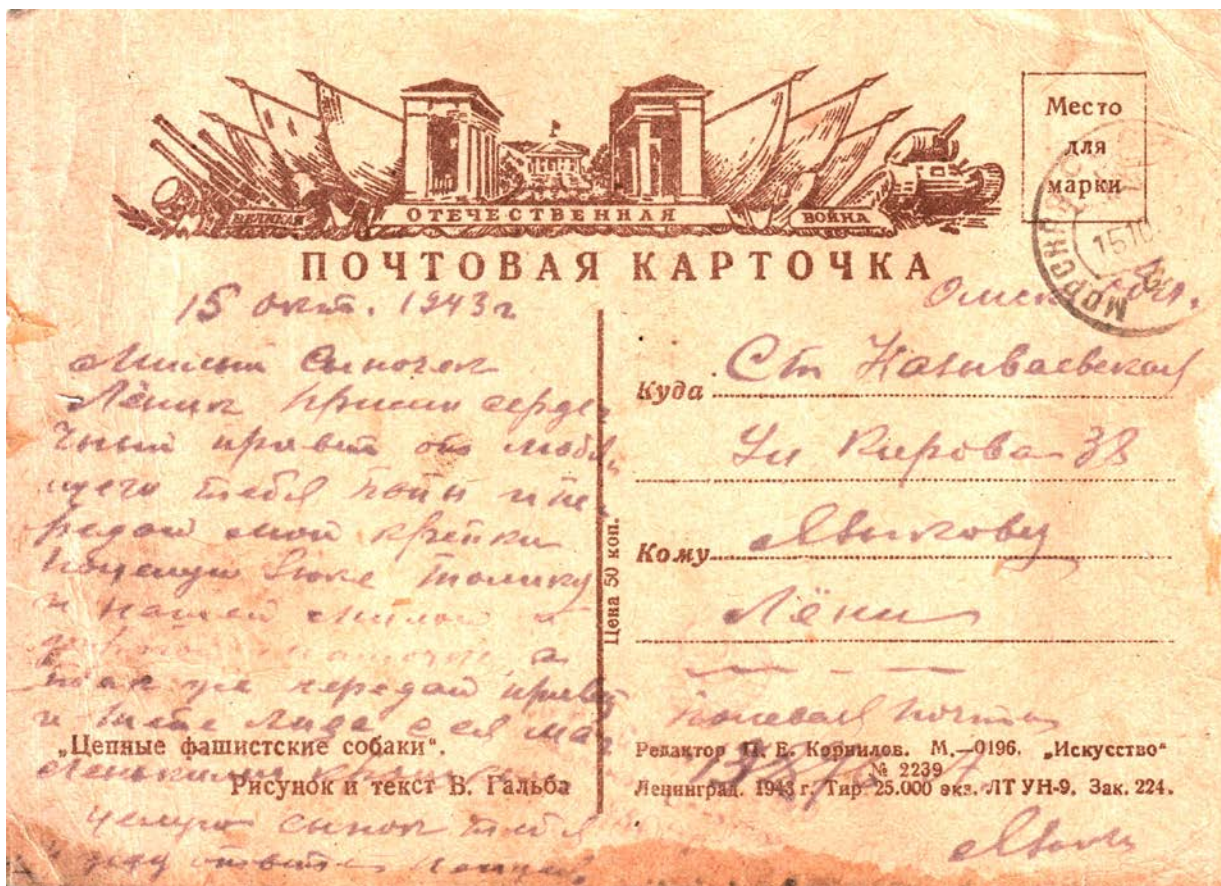 ВЕЛИКАЯ ОТЕЧЕСТВЕННАЯ ВОЙНА
Место
для
марки
ПОЧТОВАЯ КАРТОЧКА
15 окт. 1943 г
Милый Сыночек
Лёник прими сердеч
чный привет от любя
щего тебя папы и пе
редай мой крепкий
поцелуй Толику
и нашей милой и
мамочке, а
так же передай привет
и тёте Лиде с ея
целую сынок тебя
жду ответа
Цена 50 коп.
Омск обл.
Куда Ст Называевская
Ул Кирова 38
Кому
Лёни
Полевая почта
„Цепные фашистские собаки“.
Рисунок и текст В. Гальба
Редактор П. Е. Корнилов. М.—0196. „Искусство“
№ 2239
Ленинград. 1943 г. Тир. 25.000 экз. ЛТ УН-9. Зак. 224.